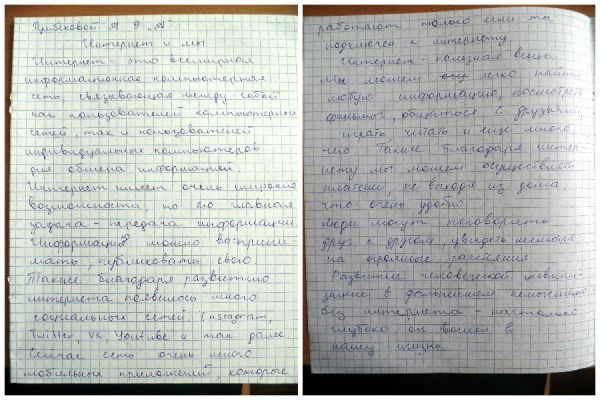 А 9 „А"
Интернет и мы
Интернет - это всемирная
информационная компьютерная
сеть, связывающая между собой
как пользователей компьютерных
сетей, так и пользователей
индивидуальных компьютеров
для обмена информацией.
Интернет имеет очень широкие
возможности, но его главная
задача - передача информации
Информацию можно воспри-
мать, публиковать свою.
Также благодаря развитию
интернета появилось много
социальных сетей: Instagram,
Twitter, VK, Youtube и так далее
Сейчас есть очень много
мобильных приложений, которые
работают только если ты
подключен к интернету.
Интернет - полезная вещь.
Мы можем легко найти
любую информацию, посмотреть
фильмы, общаться с друзьями,
играть, читать и еще много
чего Также благодаря интер-
нету мы можем осуществлять
платежи, не выходя из дома,
что очень удобно.
Люди могут поговорить
друг с другом, увидеть несмотря
на огромные расстояния
Развитие человеческой цивили-
зации в дальнейшем немыслимо
без интернета - настолько
глубоко он вошел в
нашу жизнь.